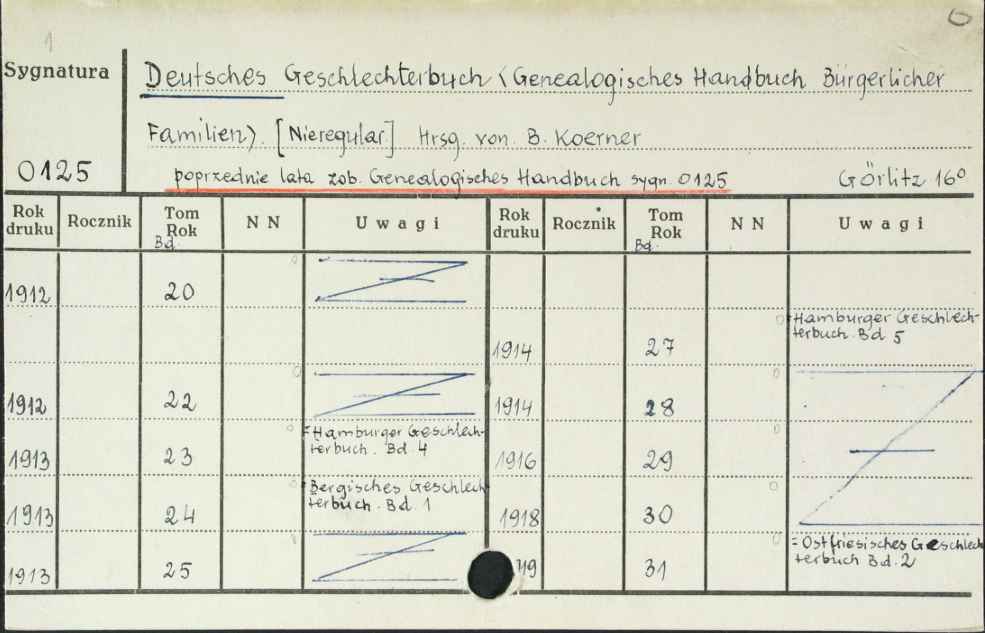 1
6
Sygnatura
Deutsches Geschlechterbuch (Genealogisches Handbuch Bürgerlicher
Familien). [Nieregular.] Hrsg. von. B. Koerner
0125
poprzednie lata zob. Genealogisches Handbuch sygn. 0125
Görlitz 16°
Rok druku Rocznik Tom Rok Bd. N N Uwagi Rok druku Rocznik Tom Rok Bd. N N Uwagi
1912 20
1914 27 Hamburger Geschlech-
terbuch. Bd 5
1912 22
1914 28
1913 23 = Hamburger Geschlech-
terbuch. Bd. 4
1916 29
1913 24 Bergisches Geschlech
terbuch. Bd. 1
1918 30
1913 25
19 31 = Ostfriesisches Geschlech
terbuch Bd. 2